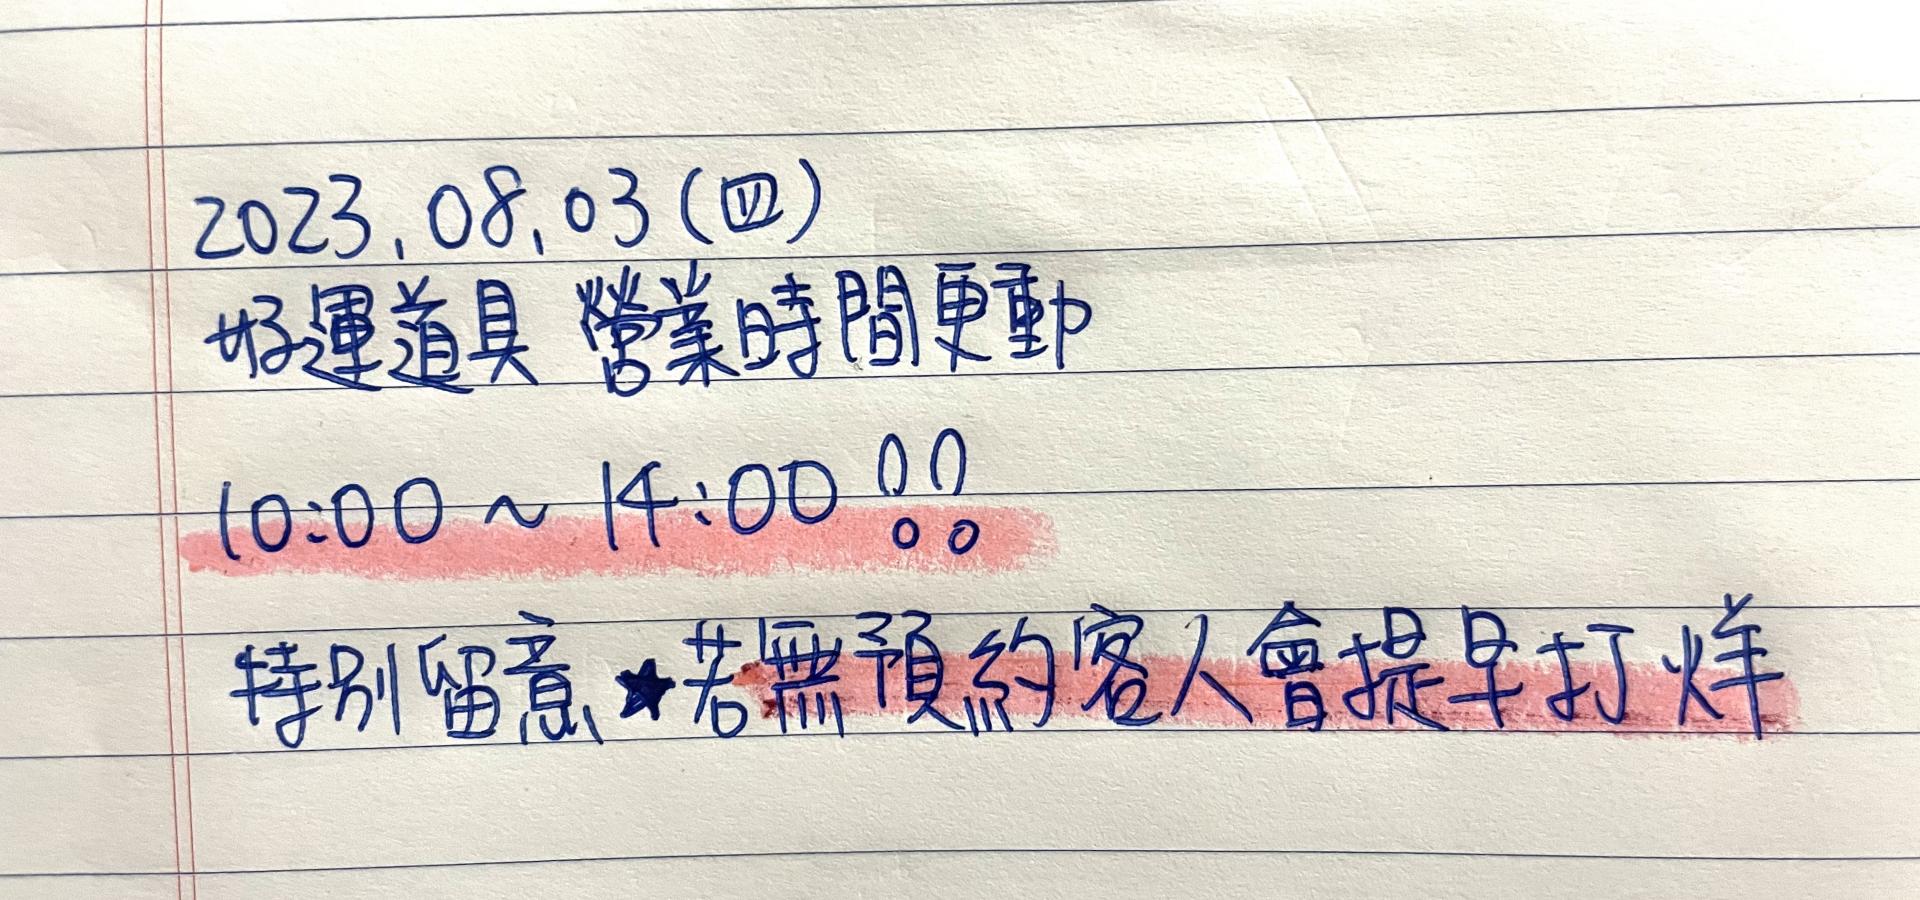 2023.08.03(四)
好運道具 營業時間更動
10:00~14:00!!
特別留意★若無預約客人會提早打烊